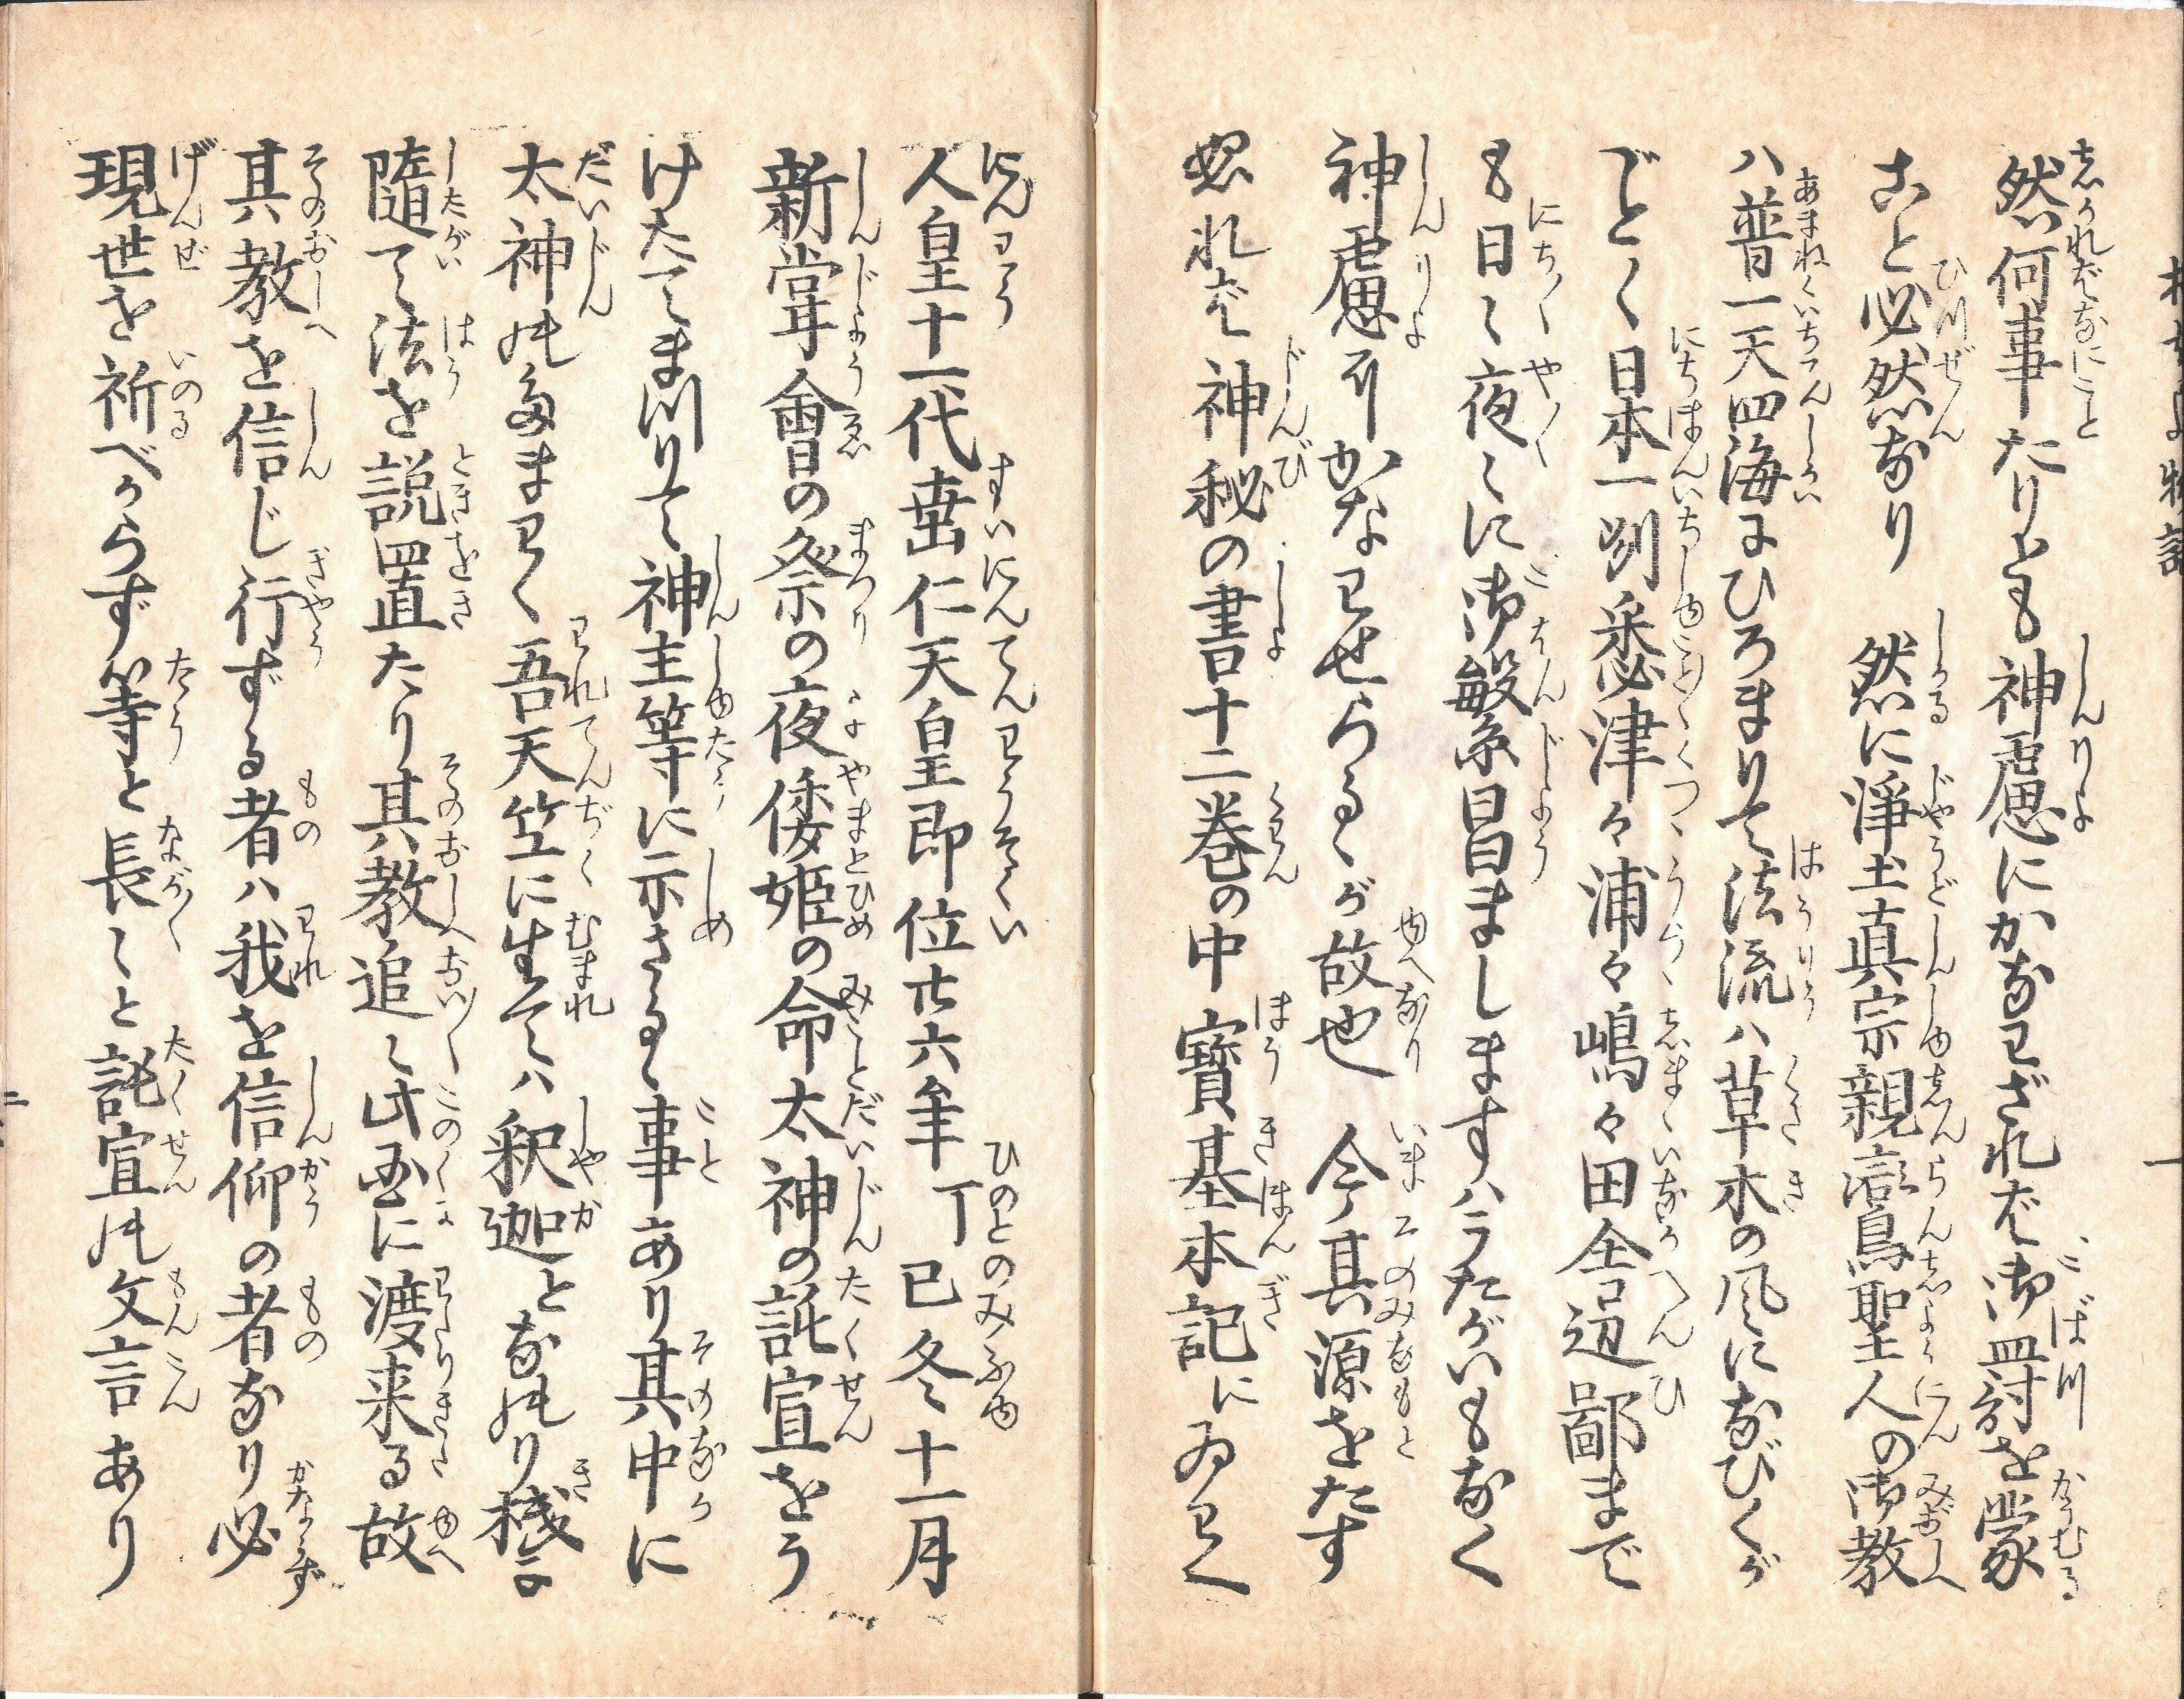 然何事たりとも神慮にかなわざれば御罸を蒙
こと必然なり　然に淨土真宗親鸞聖人の御教
ハ普一天四海にひろまりて法流ハ草木の風になびくが
ごとく日本一州悉津々浦々嶋々田舎辺鄙まで
も日〻夜〻に御繁昌ましますハうたがいもなく
神慮にかなわせらるゝが故也　今其源をたす
ぬれば神秘の書十二巻の中寳基本記にゐわく
人皇十一代垂仁天皇即位廿六年丁巳冬十一月
新甞會の祭の夜倭姫の命太神の託宣をう
けたてまつりて神主等に示さるゝ事あり其中に
太神のたまわく吾天竺に生てハ釈迦となのり機に
隨て法を説置たり其教追〻此国に渡来る故
其教を信じ行ずる者ハ我を信仰の者なり必
現世を祈べからず等と長〻と託宣の文言あり
一
二